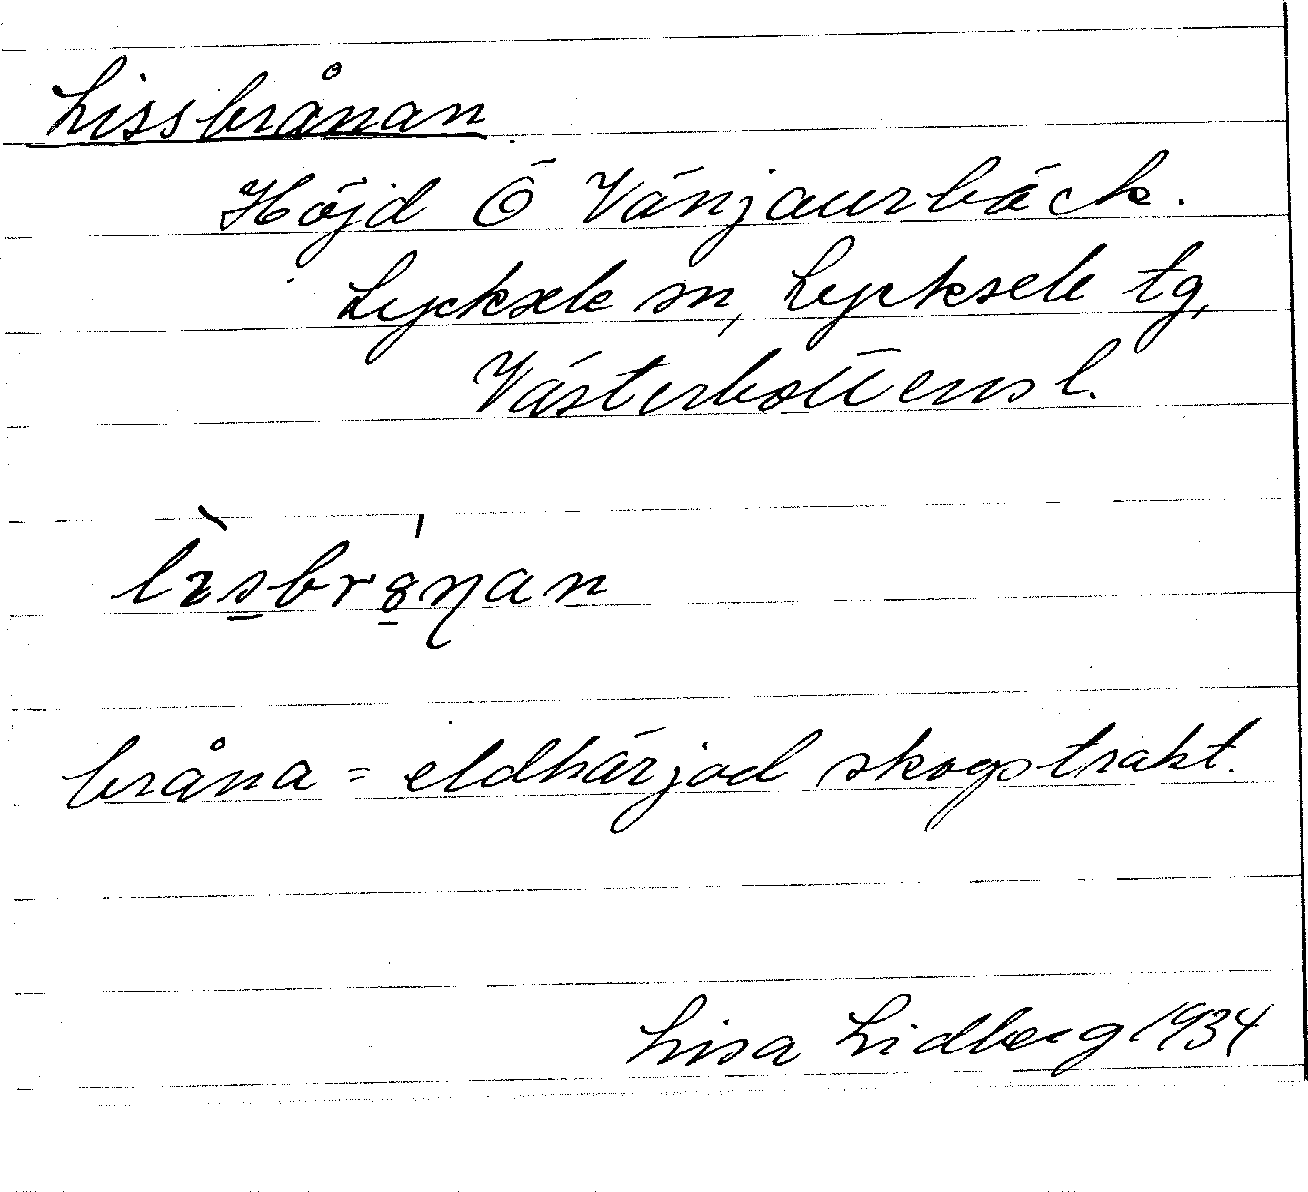 Lissbrånan
Höjd Ö Vänjaurbäck.
Lycksele sn, Lycksele tg,
Västerbottens l.
lìsbrånan
bråna = eldhärjad skogstrakt.
Lisa Lidberg 1934